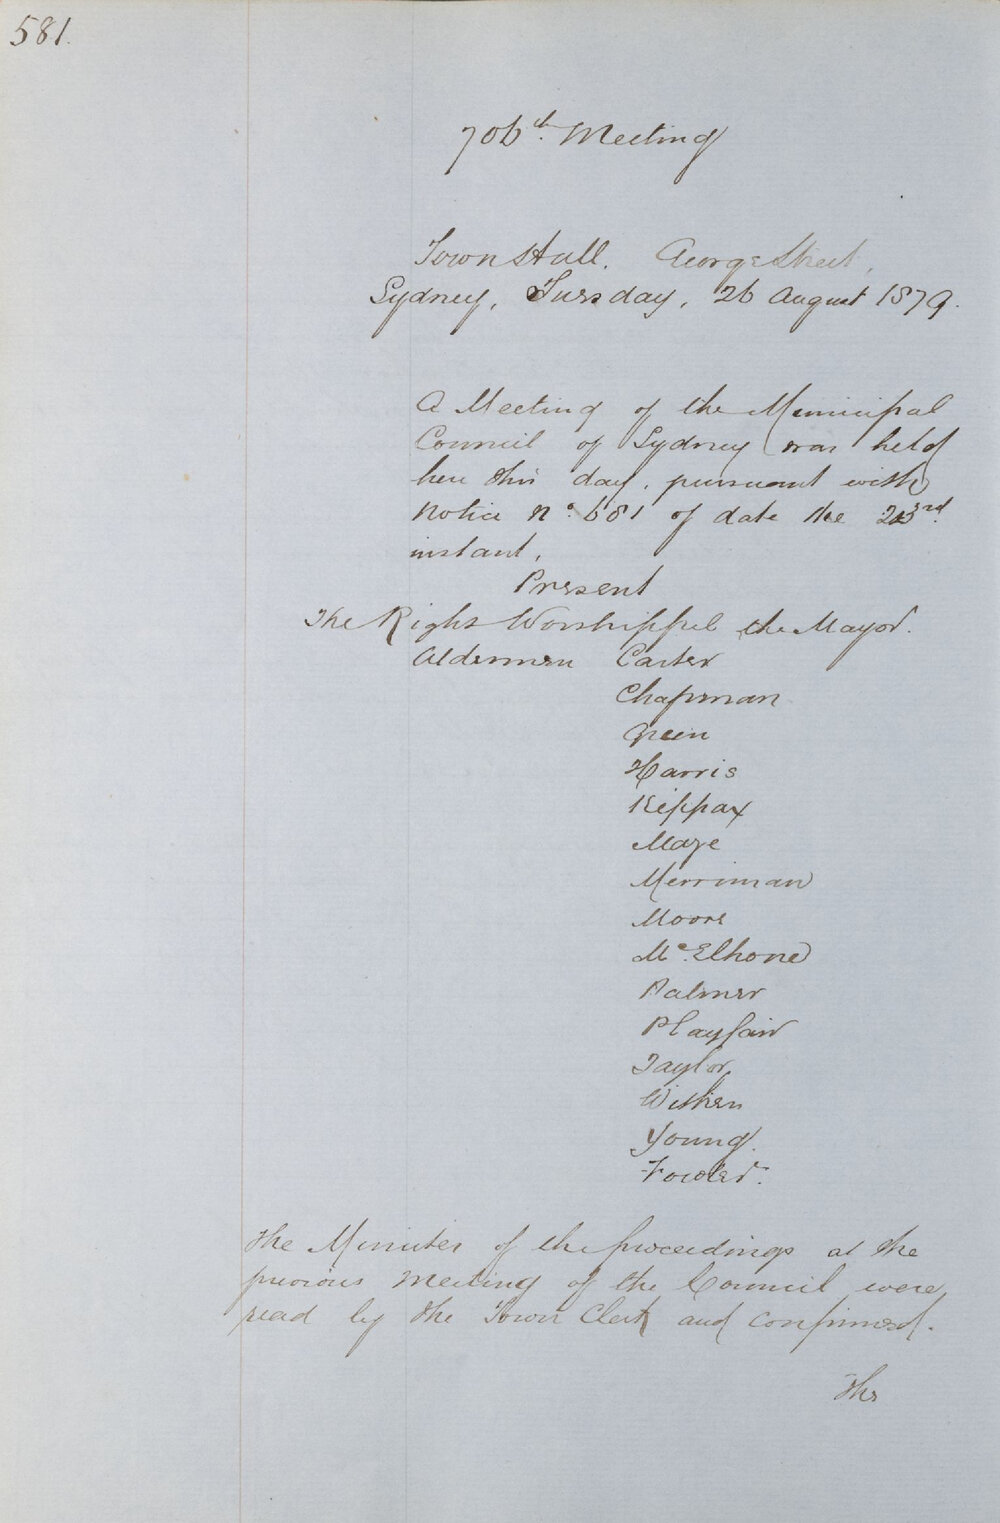 581.
706th Meeting
Town Hall. George Street,
Sydney, Tuesday, 26 August 1879.
A Meeting of the Municipal
Council of Sydney was held
here this day, pursuant with
Notice No. 681 of date the 23rd
instant.
Present
The Right Worshipful the Mayor.
Aldermen Carter
Chapman
Green
Harris
Kippax
Maze
Merriman
Moore
Mc.Elhone
Palmer
Playfair
Taylor
Withers
Young
Fowler.
The Minutes of the proceedings at the
previous Meeting of the Council were
read by the Town Clerk and confirmed.
The